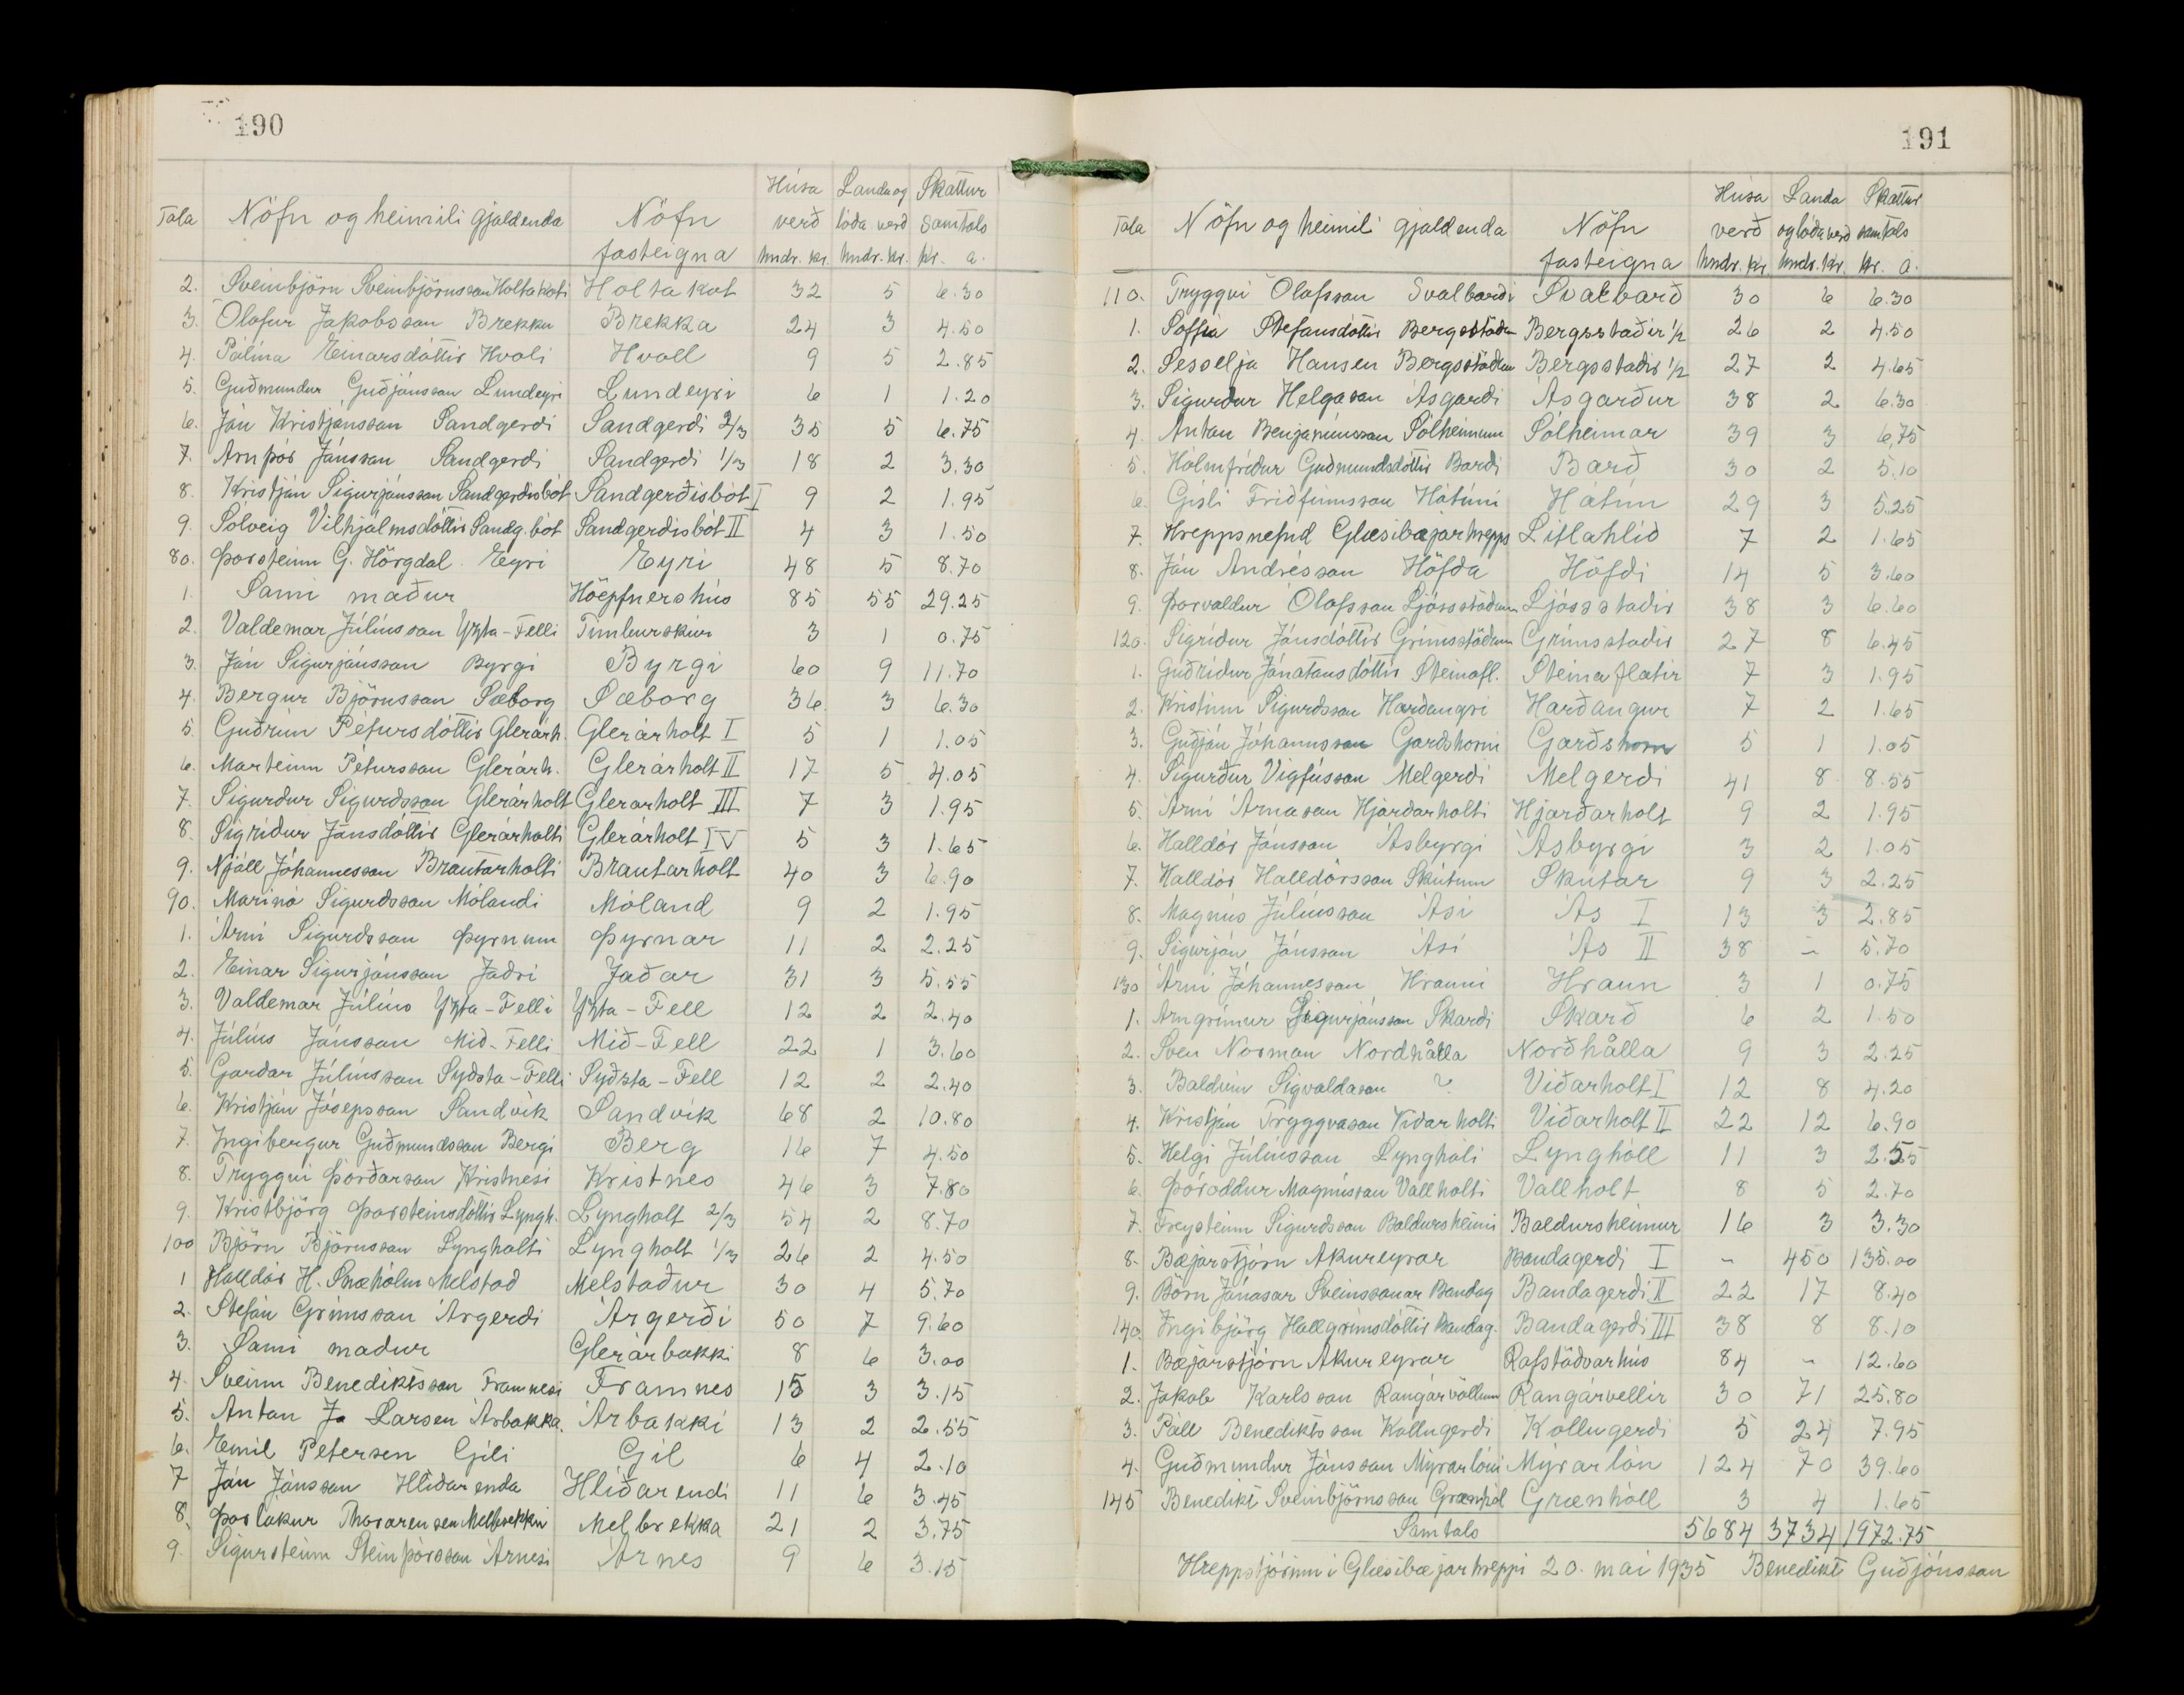 190
Tala Nöfn og heimili gjaldenda Nöfn fasteigna Húsa verð hndr. kr. Landa og lóða verð hndr. kr. Skattur samtals kr. a.
2. Sveinbjörn Sveinbjörnsson Holtakoti Holtakot 32 5 6.30
3. Ólafur Jakobsson Brekku Brekka 24 3 4.50
4. Pálína Einarsdóttir Hvoli Hvoll 9 5 2.85
5. Guðmundur Guðjónsson Lundeyri Lundeyri 6 1 1.20
6. Jón Kristjánsson Sandgerdi Sandgerdi 2/3 35 5 6.75
7. Arnþór Jónsson Sandgerdi Sandgerdi 1/3 18 2 3.30
8. Kristján Sigurjónsson Sandgerdisbót Sandgerðisbót I 9 2 1.95
9. Sólveig Vilhjálmsdóttir Sandg.bót Sandgerdisbót II 4 3 1.50
80. Þorsteinn G. Hörgdal Eyri Eyri 48 5 8.70
1. Sami maður Höepfnershús 85 55 29.25
2. Valdemar Júlíusson Yzta-Felli Timburskúr 3 1 0.75
3. Jón Sigurjónsson Byrgi Byrgi 60 9 11.70
4. Bergur Björnsson Sæborg Sæborg 36 3 6.30
5. Guðrún Pétursdóttir Glerárh. Glerárholt I 5 1 1.05
6. Marteinn Pétursson Glerárh. Glerárholt II 17 5 4.05
7. Sigurdur Sigurdsson Glerárholt Glerarholt III 7 3 1.95
8. Sigrídur Jónsdóttir Glerárholti Glerárholt IV 5 3 1.65
9. Njáll Jóhannesson Brautarholti Brautarholt 40 3 6.90
90. Marinó Sigurdsson Mólandi Móland 9 2 1.95
1. Árni Sigurdsson Þyrnum Þyrnar 11 2 2.25
2. Einar Sigurjónsson Jaðri Jaðar 31 3 5.55
3. Valdemar Júlíus Yzta-Felli Yzta-Fell 12 2 2.40
4. Júlíus Jónsson Mid-Felli Mið-Fell 22 1 3.60
5. Gardar Júlíusson Syðsta-Felli Syðsta-Fell 12 2 2.40
6. Kristján Jósepsson Sandvík Sandvík 68 2 10.80
7. Ingibergur Guðmundsson Bergi Berg 16 7 4.50
8. Tryggvi Þorðarson Kristnesi Kristnes 46 3 7.80
9. Kristbjörg Þorsteinsdóttir Lyngh. Lyngholt 2/3 54 2 8.70
100 Björn Björnsson Lyngholti Lyngholt 1/3 26 2 4.50
1 Halldór H. Snæhólm Melstad Melstaður 30 4 5.70
2. Stefán Grímsson Árgerdi Árgerði 50 7 9.60
3. Sami madur Glerárbakki 8 6 3.00
4. Sveinn Benediktsson Framnesi Framnes 15 3 3.15
5. Anton Ja Larsen Árbakka. Árbakki 13 2 2.55
6. Emil Petersen Gili Gil 6 4 2.10
7 Jón Jónsson Hlídarenda Hlíðarendi 11 6 3.45
8. Þorlákur Thorarensen Melbrekku Melbrekka 21 2 3.75
9. Sigursteinn Steinþórsson Árnesi Árnes 9 6 3.15
191
Tala Nöfn og heimili gjaldenda Nöfn fasteigna Húsa verð hndr. kr. Landa og lóða verð hndr. kr. Skattur samtals kr. a.
110. Tryggvi Ólafsson Svalbardi Svalbarð 30 6 6.30
1. Soffía Stefansdóttir Bergsstödum Bergsstaðir 1/2 26 2 4.50
2. Sesselja Hansen Bergsstödum Bergsstadir 1/2 27 2 4.65
3. Sigurdur Helgason Ásgardi Ásgarður 38 2 6.30
4. Anton Benjamínsson Sólheimum Sólheimar 39 3 6,75
5. Holmfrídur Guðmundsdóttir Bardi Barð 30 2 5.10
6. Gísli Fridfinnsson Hátúni Hátún 29 3 5.25
7. Hreppsnefnd Glæsibæjarhrepps Litlahlíd 7 2 1.65
8. Jón Andrésson Höfda Höfdi 14 5 3.60
9. Þorvaldur Ólafsson Ljósstödum Ljósstadir 38 3 6.60
120. Sigrídur Jónsdóttir Grímsstödum Grímsstadir 27 8 6.45
1. Guðrídur Jónatansdóttir Steinafl. Steinaflatir 7 3 1.95
2. Kristinn Sigurdsson Hardangri Harðangur 7 2 1.65
3. Guðjón Jóhannsson Gardshorni Garðshorn 5 1 1.05
4. Sigurður Vigfússon Melgerdi Melgerdi 41 8 8.55
5. Árni Árnason Hjardarholti Hjarðarholt 9 2 1.95
6. Halldór Jónsson Ásbyrgi Ásbyrgi 3 2 1.05
7. Halldór Halldórsson Skútum Skútar 9 3 2.25
8. Magnús Júlíusson Ási Ás I 13 3 2.85
9. Sigurjón Jónsson Ási Ás II 38 - 5.70
130 Árni Jóhannesson Hrauni Hraun 3 1 0.75
1. Arngrímur Sigurjónsson Skardi Skarð 6 2 1.50
2. Sven Norman Nordhålla Norðhålla 9 3 2.25
3. Baldvin Sigvaldason ? Viðarholt I 12 8 4.20
4. Kristján Tryggvason Vidarholti Viðarholt II 22 12 6.90
5. Helgi Júlíusson Lynghóli Lynghóll 11 3 2.55
6. Þóroddur Magnússon Vallholti Vallholt 8 5 2.70
7. Freysteinn Sigurdsson Baldursheimi Baldursheimur 16 3 3.30
8. Bæjarstjórn Akureyrar Bandagerdi I - 450 135.00
9. Börn Jónasar Sveinssonar Bandag Bandagerdi II 22 17 8.40
140. Ingibjörg Hallgrímsdóttir Bandag. Bandagerdi III 38 8 8.10
1. Bæjarstjórn Akureyrar Rafstödvarhús 84 - 12.60
2. Jakob Karlsson Rangárvöllum Rangárvellir 30 71 25.80
3. Páll Benediktsson Kollugerdi Kollugerdi 5 24 7.95
4. Guðmundur Jónsson Mýrarlóni Mýrarlón 124 70 39.60
145 Benedikt Sveinbjörnsson Grænhól Grænhóll 3 4 1.65
Samtals 5684 3734 1972.75
Hreppstjórinn í Glæsibæjarhreppi 20. maí 1935 Benedikt Guðjónsson